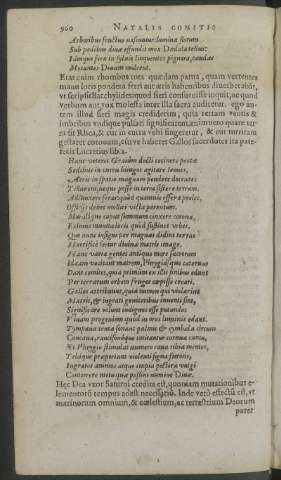 960 NATALIS COMITIS
Arboribus fructus nascuntur, lumina florum
Sub pedibus diuæ effundit mox Dædala tellus:
Idémque feræ in syluis linquentes pignora, caudas
Motantes Diuam mulcent.
Erat enim rhombos tota quædam parua, quam vertentes
manu locis pondera ferri aut æris habentibus diuerberabāt,
vt scriptū est: æchylidémque id fieri consueuisse inquit, ne quod
verbum aut vox molesta inter illa sacra audiretur. ego au-
tem illud fieri magis crediderim, quia terram ventis &
imbribus vndique pulsari significarent. at immeto quare tur-
ris sit Rhea, & cur in curru vehi fingeretur, & cur turritam
gestaret coronam, cur ve haberet Gallos sacerdotes ita pate-
fecit Lucretius lib. 2.
Hanc veteres Graiûm docti cecinere poetæ
Sedibus in curru biiugos agitare leones,
Aëris in spatio magnam pendere docentes
Tellurem, neque posse in terra sistere terram.
Adiunxere feras: quòd quamuis effera proles,
Officijs debet molliri victa parentum.
Muralique caput summum cinxere corona,
Eximijs munita locis quòd sustinet vrbes.
Quo nunc insigni per magnas didita terras
Horrificè fertur diuinæ matris imago.
Hanc variæ gentes antiquo more sacrorum
Idæam vocitant matrem, Phrygiasque cateruas
Dant comites, quia primùm ex illis finibus edunt
Per terrarum orbem fruges cœpisse creari.
Gallos attribuunt, quia numen qui violarint
Matris, & ingrati genitoribus inuenti sint,
Significare volunt indignos esse putandos
Viuam progeniem quod in oras luminis edant.
Tympana tenta sonant palmis & cymbala circum
Concaua, raucisonóque minantur cornua cantu,
Et Phrygio stimulat numero caua tibia mentes,
Teláque præportant violenti signa furoris,
Ingratos animos atque impia pectora vulgi
Conterrere metu quæ possint numine Diuæ.
Hęc Dea vxor Saturni credita est, quoniam mutationibus e-
lementorū tempus adest necessariò. Inde verò effectū est, vt
mater omnium, & cœlestium, ac terrestrium Deorum
putet